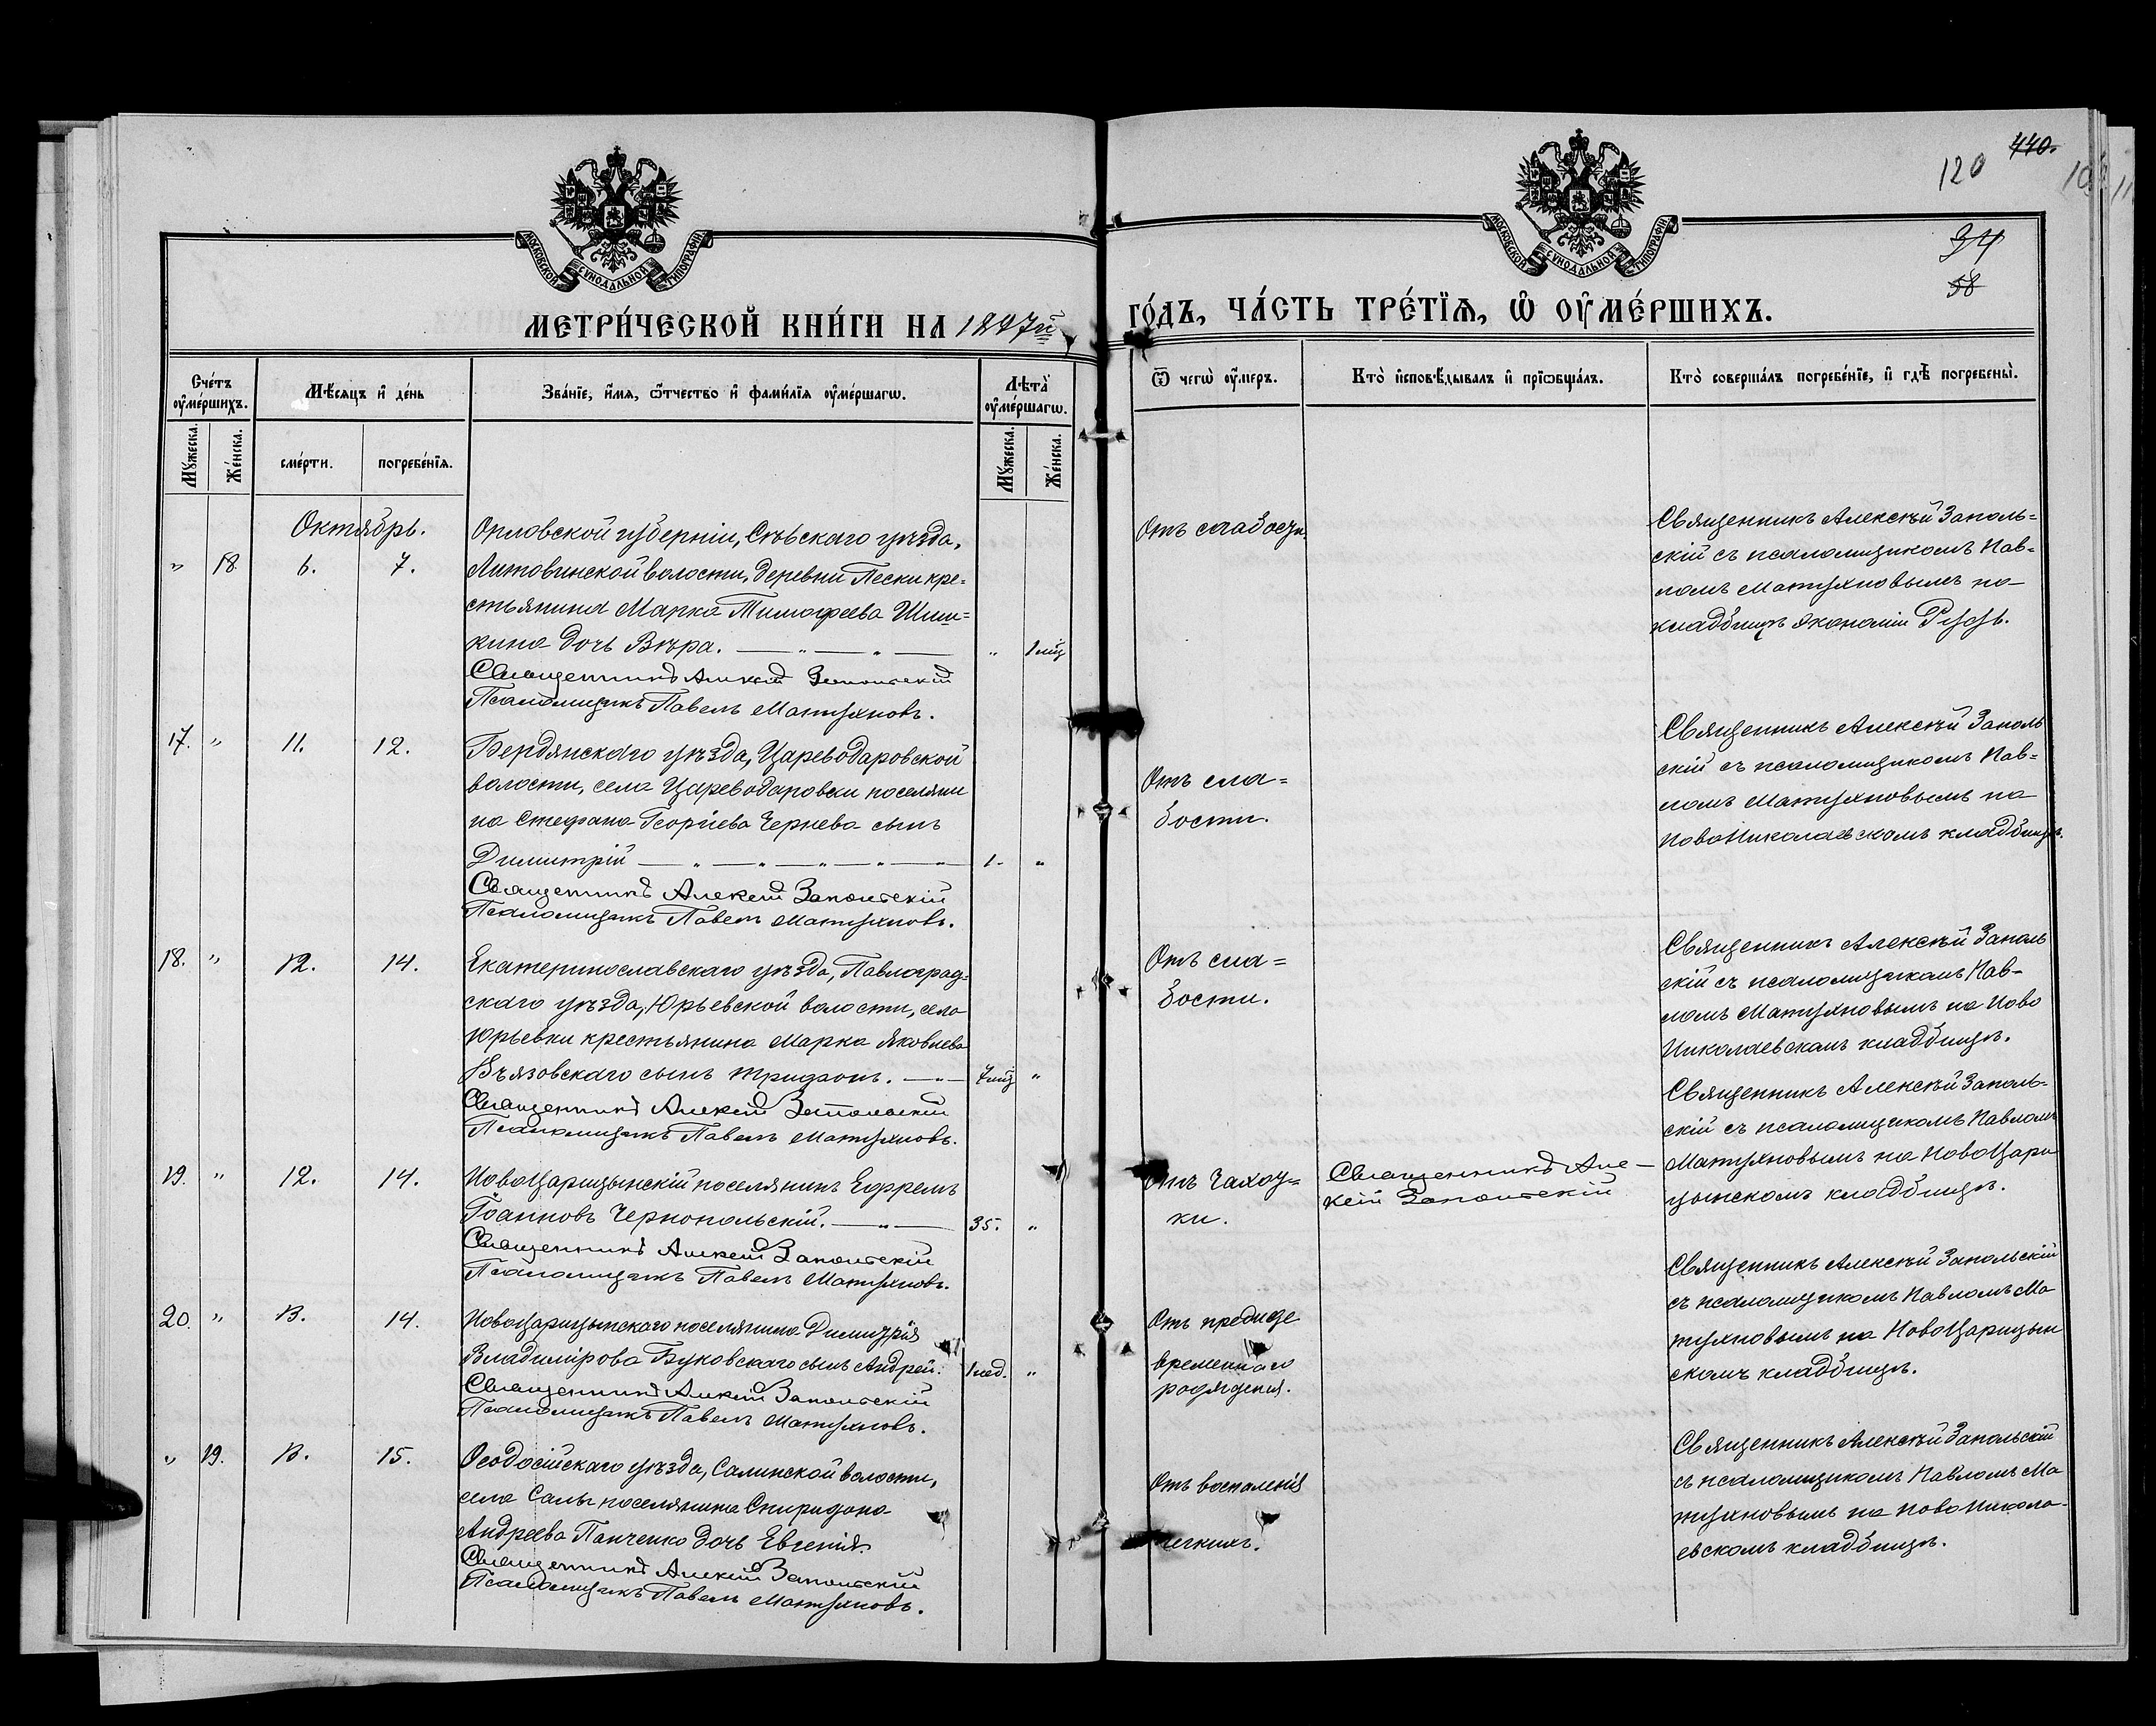 120
440.
34
58
МОСКОВСКОЙ СѴНОДАЛЬНОЙ ТИПОГРАФІИ
МОСКОВСКОЙ СѴНОДАЛЬНОЙ ТИПОГРАФІИ
МЕТРИ́ЧЕСКОЙ КНИ́ГИ НА 1897й
ГО́ДЪ, ЧА́СТЬ ТРЕ́ТЇѦ, Ѡ҆ ОУ҆МЕ́РШИХЪ.
Сче́тъ оу҆ме́ршихъ.
Мѣ́сяцъ и҆ де́нь
Зва́нїе, и҆́мя, ѻ҆́тчество и҆ фами́лїя оу҆ме́ршагѡ.
Лѣта̀ оу҆ме́ршагѡ.
Ѿ чегѡ̀ оу҆́меръ.
Кто̀ и҆сповѣ́дывалъ и҆ прїѡбща́лъ.
Кто̀ соверша́лъ погребе́нїе, и҆ гдѣ̀ погребены̀.
Мꙋ́жеска.
Же́нска.
сме́рти.
погребе́нїя.
Мꙋ́жеска.
Же́нска.
Октябрь.
" 18. 6. 7.
Орловской губерніи, Сѣвскаго уѣзда,
Литовинской волости, деревни Пески кре=
стьянина Марка Тимофеева Шиш=
кина дочь Вѣра. — " — " — " 1 мц
Священникъ Алексій Запольскій
Псаломщикъ Павелъ Матухновъ.
Отъ слабости.
Священникъ Алексѣй Заполь=
скій съ псаломщикомъ Пав=
ломъ Матухновымъ на
кладбищѣ экономіи
17. " 11. 12.
Бердянскаго уѣзда, Цареводаровской
волости, села Цареводаровки поселяни
на Стефана Георгіева Чернева сынъ
Димитрій — " — " — " — " — 1. "
Священникъ Алексій Запольскій
Псаломщикъ Павелъ Матухновъ.
Отъ сла=
бости.
Священникъ Алексѣй Заполь
скій съ псаломщикомъ Пав=
ломъ Матухновымъ на
Новониколаевскомъ кладбищѣ.
18. " 12. 14.
Екатеринославскаго уѣзда, Павлоград=
скаго уѣзда, Юрьевской волости, села
Юрьевки крестьянина Марка Яковлева
Вьязовскаго сынъ Трифонъ. — " — 7 мц "
Священникъ Алексій Запольскій
Псаломщикъ Павелъ Матухновъ.
Отъ сла=
бости.
Священникъ Алексѣй Заполь
скій съ псаломщикомъ Пав-
ломъ Матухновымъ на Ново
Николаевскомъ кладбищѣ.
19. " 12. 14.
Новоцарицынскій поселянинъ Ефремъ
Іоанновъ Чернопольскій. — " — 35. "
Священникъ Алексій Запольскій
Псаломщикъ Павелъ Матухновъ.
Отъ чахот=
ки.
Священникъ Але-
ксій Запольскій
Священникъ Алексѣй Заполь-
скій съ псаломщикомъ Павломъ
Матухновымъ на Новоцари
цынскомъ кладбищѣ.
20. " 13. 14.
Новоцарицынскаго поселянина Димитрія
Владимірова Буковскаго сынъ Андрей. 1 нед. "
Священникъ Алексій Запольскій
Псаломщикъ Павелъ Матухновъ.
Отъ
временнаго
рождения.
Священникъ Алексѣй Запольскій
съ псаломщикомъ Павломъ Ма
тухновымъ на Новоцарицын
скомъ кладбищѣ.
" 19. 13. 15.
Ѳеодосійскаго уѣзда, Салинской волости,
села Салы поселянина Спиридона
Андреева Панченко дочь Евгенія.
Священникъ Алексій Запольскій
Псаломщикъ Павелъ Матухновъ.
Отъ воспаленія
легкихъ.
Священникъ Алексѣй Запольскій
съ псаломщикомъ Павломъ Ма
тухновымъ на Новониколa-
евскомъ кладбищѣ.